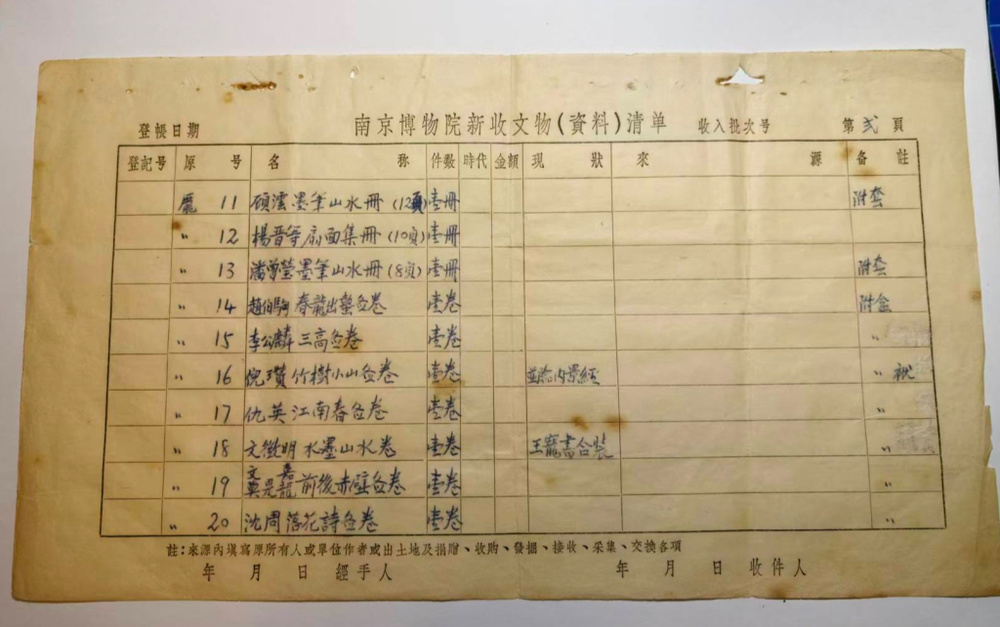 登帳日期 南京博物院新收文物(資料)清单 收入批次号 第弍頁
登記号 原号 名称 件数 时代 金額 现狀 來源 备註
龐 11 顾澐墨筆山水冊(12頁) 壹冊 附套
〃 12 楊晋等扇面集冊(10頁) 壹冊
〃 13 潘曾瑩墨筆山水冊(8頁) 壹冊 附套
〃 14 趙伯駒春龍出蟄啚卷 壹卷 附盒
〃 15 李公麟三高啚卷 壹卷 〃
〃 16 倪瓚竹樹小山啚卷 壹卷 内景經 〃
〃 17 仇英江南春啚卷 壹卷 〃
〃 18 文徵明水墨山水卷 壹卷 王寵書合裝 〃
〃 19 文嘉 莫是龍前後赤壁啚卷 壹卷 〃
〃 20 沈周落花詩啚卷 壹卷 〃
註:來源內填寫原所有人或單位作者或出土地及捐贈、收购、發掘、接收、采集、交換各項
年 月 日 經手人 年 月 日 收件人